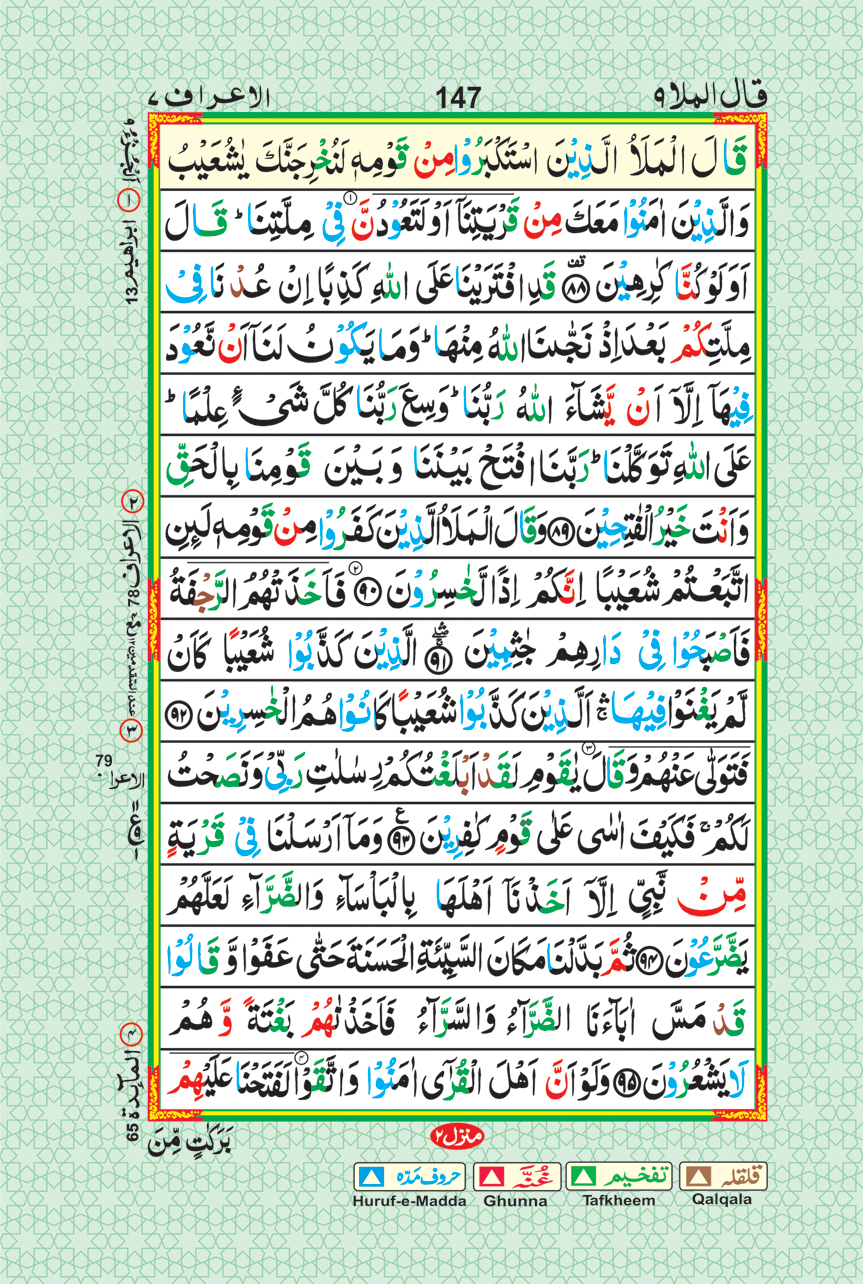 قال الملا ۹
147
الاعراف ۷
قَالَ الْمَلَاُ الَّذِيْنَ اسْتَكْبَرُوْا مِنْ قَوْمِهٖ لَنُخْرِجَنَّكَ يٰشُعَيْبُ
وَالَّذِيْنَ اٰمَنُوْا مَعَكَ مِنْ قَرْيَتِنَآ اَوْ لَتَعُوْدُنَّ فِيْ مِلَّتِنَا ؕ قَالَ
اَوَلَوْ كُنَّا كٰرِهِيْنَ ﴿۸۸﴾ قَدِ افْتَرَيْنَا عَلَى اللّٰهِ كَذِبًا اِنْ عُدْنَا فِيْ
مِلَّتِكُمْ بَعْدَ اِذْ نَجّٰىنَا اللّٰهُ مِنْهَا ؕ وَمَا يَكُوْنُ لَنَآ اَنْ نَّعُوْدَ
فِيْهَآ اِلَّآ اَنْ يَّشَآءَ اللّٰهُ رَبُّنَا ؕ وَسِعَ رَبُّنَا كُلَّ شَيْءٍ عِلْمًا ؕ
عَلَى اللّٰهِ تَوَكَّلْنَا ؕ رَبَّنَا افْتَحْ بَيْنَنَا وَبَيْنَ قَوْمِنَا بِالْحَقِّ
وَاَنْتَ خَيْرُ الْفٰتِحِيْنَ ﴿۸۹﴾ وَقَالَ الْمَلَاُ الَّذِيْنَ كَفَرُوْا مِنْ قَوْمِهٖ لَئِنِ
اتَّبَعْتُمْ شُعَيْبًا اِنَّكُمْ اِذًا لَّخٰسِرُوْنَ ﴿۹۰﴾ فَاَخَذَتْهُمُ الرَّجْفَةُ
فَاَصْبَحُوْا فِيْ دَارِهِمْ جٰثِمِيْنَ ﴿۹۱﴾ الَّذِيْنَ كَذَّبُوْا شُعَيْبًا كَاَنْ
لَّمْ يَغْنَوْا فِيْهَا ۛ اَلَّذِيْنَ كَذَّبُوْا شُعَيْبًا كَانُوْا هُمُ الْخٰسِرِيْنَ ﴿۹۲﴾
فَتَوَلّٰى عَنْهُمْ وَقَالَ يٰقَوْمِ لَقَدْ اَبْلَغْتُكُمْ رِسٰلٰتِ رَبِّيْ وَنَصَحْتُ
لَكُمْ ۚ فَكَيْفَ اٰسٰى عَلٰى قَوْمٍ كٰفِرِيْنَ ﴿۹۳﴾ وَمَآ اَرْسَلْنَا فِيْ قَرْيَةٍ
مِّنْ نَّبِيٍّ اِلَّآ اَخَذْنَآ اَهْلَهَا بِالْبَاْسَآءِ وَالضَّرَّآءِ لَعَلَّهُمْ
يَضَّرَّعُوْنَ ﴿۹۴﴾ ثُمَّ بَدَّلْنَا مَكَانَ السَّيِّئَةِ الْحَسَنَةَ حَتّٰى عَفَوْا وَّقَالُوْا
قَدْ مَسَّ اٰبَآءَنَا الضَّرَّآءُ وَالسَّرَّآءُ فَاَخَذْنٰهُمْ بَغْتَةً وَّهُمْ
لَا يَشْعُرُوْنَ ﴿۹۵﴾ وَلَوْ اَنَّ اَهْلَ الْقُرٰٓى اٰمَنُوْا وَاتَّقَوْا لَفَتَحْنَا عَلَيْهِمْ
بَرَكٰتٍ مِّنَ
منزل ۲
ابراهيم 13
الاعراف 78
79
الاعرا
المآئدة 65
حروف مدّہ
غُنَّہ
تفخیم
قلقلہ
Huruf-e-Madda
Ghunna
Tafkheem
Qalqala